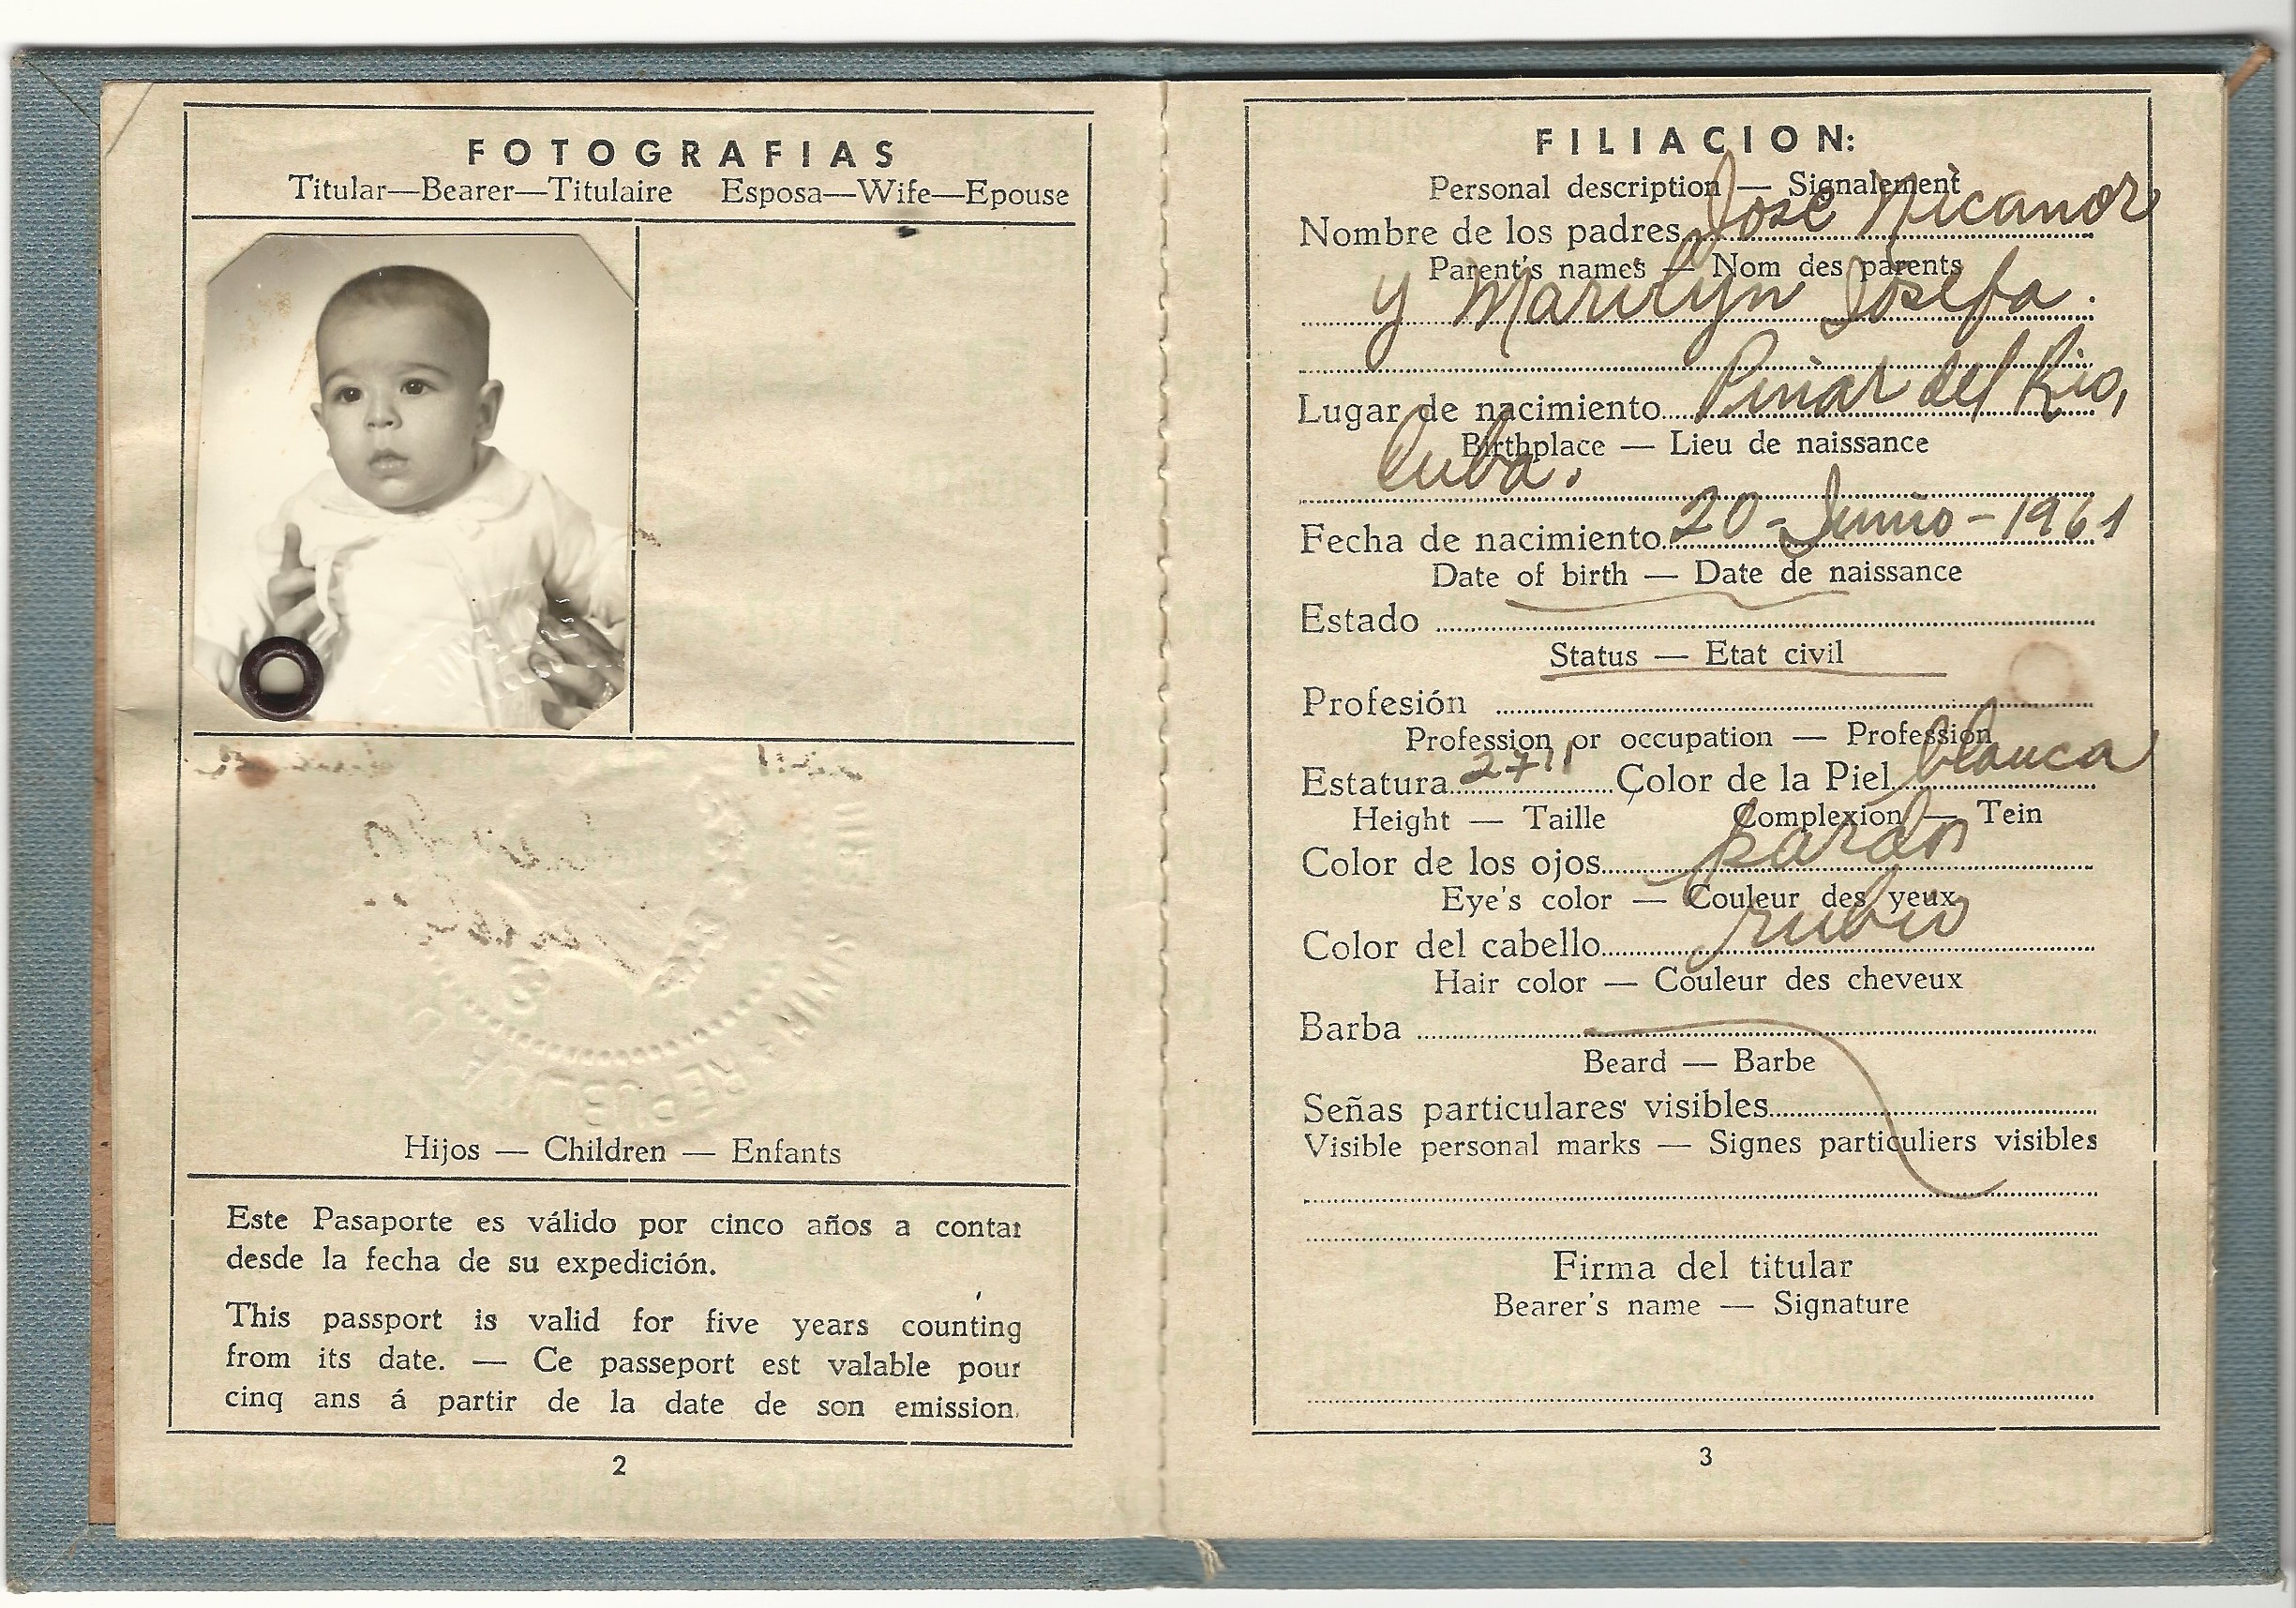 FOTOGRAFIAS
Titular—Bearer—Titulaire Esposa—Wife—Epouse
Hijos — Children — Enfants
Este Pasaporte es válido por cinco años a contar
desde la fecha de su expedición.
This passport is valid for five years counting
from its date. — Ce passeport est valable pour
cinq ans á partir de la date de son emission.
2
FILIACION:
Personal description — Signalement
Nombre de los padres José Nicanor
Parent's names — Nom des parents
y Marilyn Josefa.
Lugar de nacimiento Pinar del Rio,
Birthplace — Lieu de naissance
Cuba.
Fecha de nacimiento 20-Junio-1961
Date of birth — Date de naissance
Estado
Status — Etat civil
Profesión
Profession or occupation — Profession
Estatura 27" Color de la Piel blanca
Height — Taille Complexion — Tein
Color de los ojos pardos
Eye's color — Couleur des yeux
Color del cabello rubio
Hair color — Couleur des cheveux
Barba
Beard — Barbe
Señas particulares visibles
Visible personal marks — Signes particuliers visibles
Firma del titular
Bearer's name — Signature
3